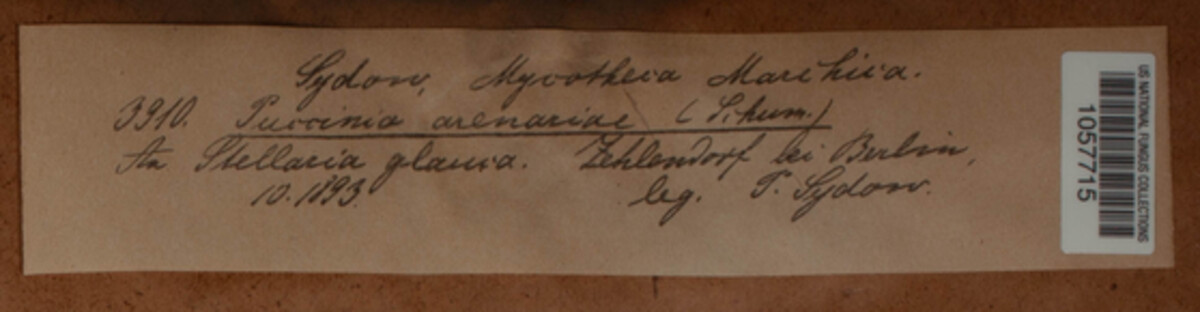 Sydow, Mycotheca Marchica.
3910. Puccinia arenariae (Schum.)
An Stellaria glauca. Zehlendorf bei Berlin,
10. 1893. leg. P. Sydow.
US NATIONAL FUNGUS COLLECTIONS
1057715